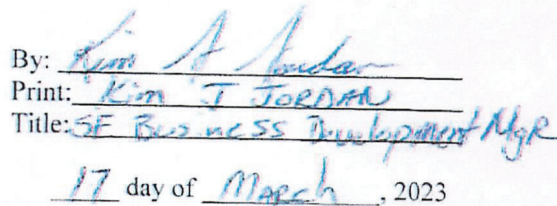 By: Kim J Jordan
Print: Kim J JORDAN
Title: SE Business Development MgR
17 day of March, 2023